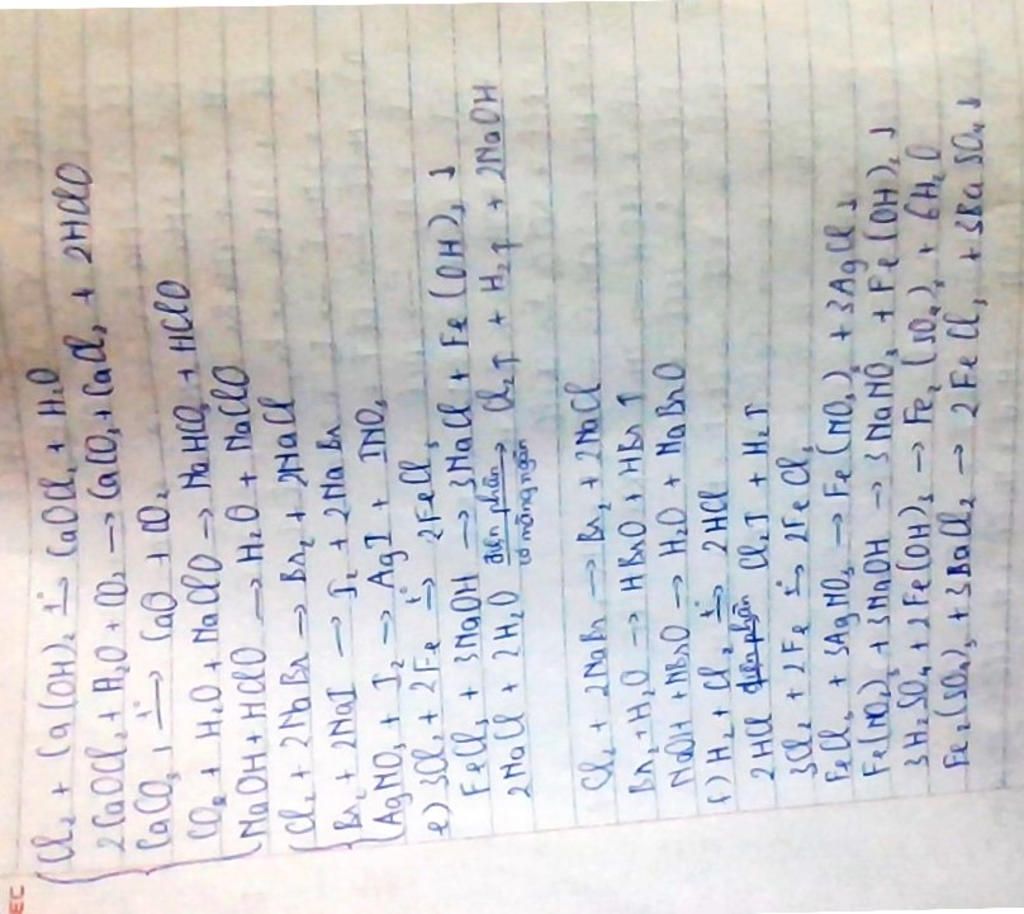 EC
Cl₂ + Ca(OH)₂ —t°→ CaOCl₂ + H₂O
2CaOCl₂ + H₂O + CO₂ → CaCO₃ + CaCl₂ + 2HClO
CaCO₃ —t°→ CaO + CO₂
CO₂ + H₂O + NaClO → NaHCO₃ + HClO
NaOH + HClO → H₂O + NaClO
Cl₂ + 2NaBr → Br₂ + 2NaCl
Br₂ + 2NaI → I₂ + 2NaBr
AgNO₃ + I₂ → AgI + INO₃
e) 3Cl₂ + 2Fe —t°→ 2FeCl₃
FeCl₃ + 3NaOH → 3NaCl + Fe(OH)₃ ↓
2NaCl + 2H₂O —điện phân→ Cl₂↑ + H₂↑ + 2NaOH
có màng ngăn
Cl₂ + 2NaBr → Br₂ + 2NaCl
Br₂ + H₂O → HBrO + HBr ↑
NaOH + HBrO → H₂O + NaBrO
f) H₂ + Cl₂ —t°→ 2HCl
2HCl điện phân Cl₂↑ + H₂↑
3Cl₂ + 2Fe —t°→ 2FeCl₃
FeCl₃ + 3AgNO₃ → Fe(NO₃)₃ + 3AgCl ↓
Fe(NO₃)₃ + 3NaOH → 3NaNO₃ + Fe(OH)₃ ↓
3H₂SO₄ + 2Fe(OH)₃ → Fe₂(SO₄)₃ + 6H₂O
Fe₂(SO₄)₃ + 3BaCl₂ → 2FeCl₃ + 3BaSO₄ ↓